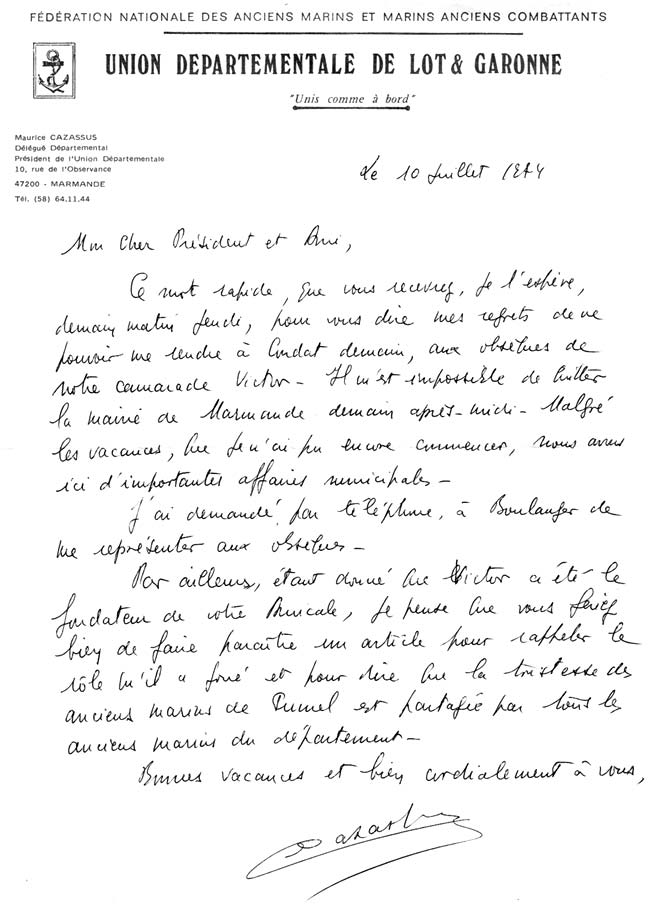 FÉDÉRATION NATIONALE DES ANCIENS MARINS ET MARINS ANCIENS COMBATTANTS
UNION DEPARTEMENTALE DE LOT & GARONNE
"Unis comme à bord"
Maurice CAZASSUS
Délégué Départemental
Président de l'Union Départementale
10, rue de l'Observance
47200 - MARMANDE
Tél. (58) 64.11.44
Le 10 Juillet
Mon Cher Président et Ami,
Ce mot rapide, que vous recevrez, je l'espère,
demain matin Jeudi, pour vous dire mes regrets de ne
pouvoir me rendre à Condat demain, aux obsèques de
notre camarade Victor - Il m'est impossible de quitter
la mairie de Marmande demain après-midi - Malgré
les vacances, que je n'ai pu encore commencer, nous avons
ici d'importantes affaires municipales -
J'ai demandé, par téléphone, à Boulanger de
me représenter aux obsèques -
Par ailleurs, étant donné que Victor a été le
fondateur de votre Amicale, je pense que vous feriez
bien de faire paraître un article pour rappeler le
rôle qu'il a joué et pour dire que la tristesse des
anciens marins de Fumel est partagée par tous les
anciens marins du département -
Bonnes vacances et bien cordialement à vous,